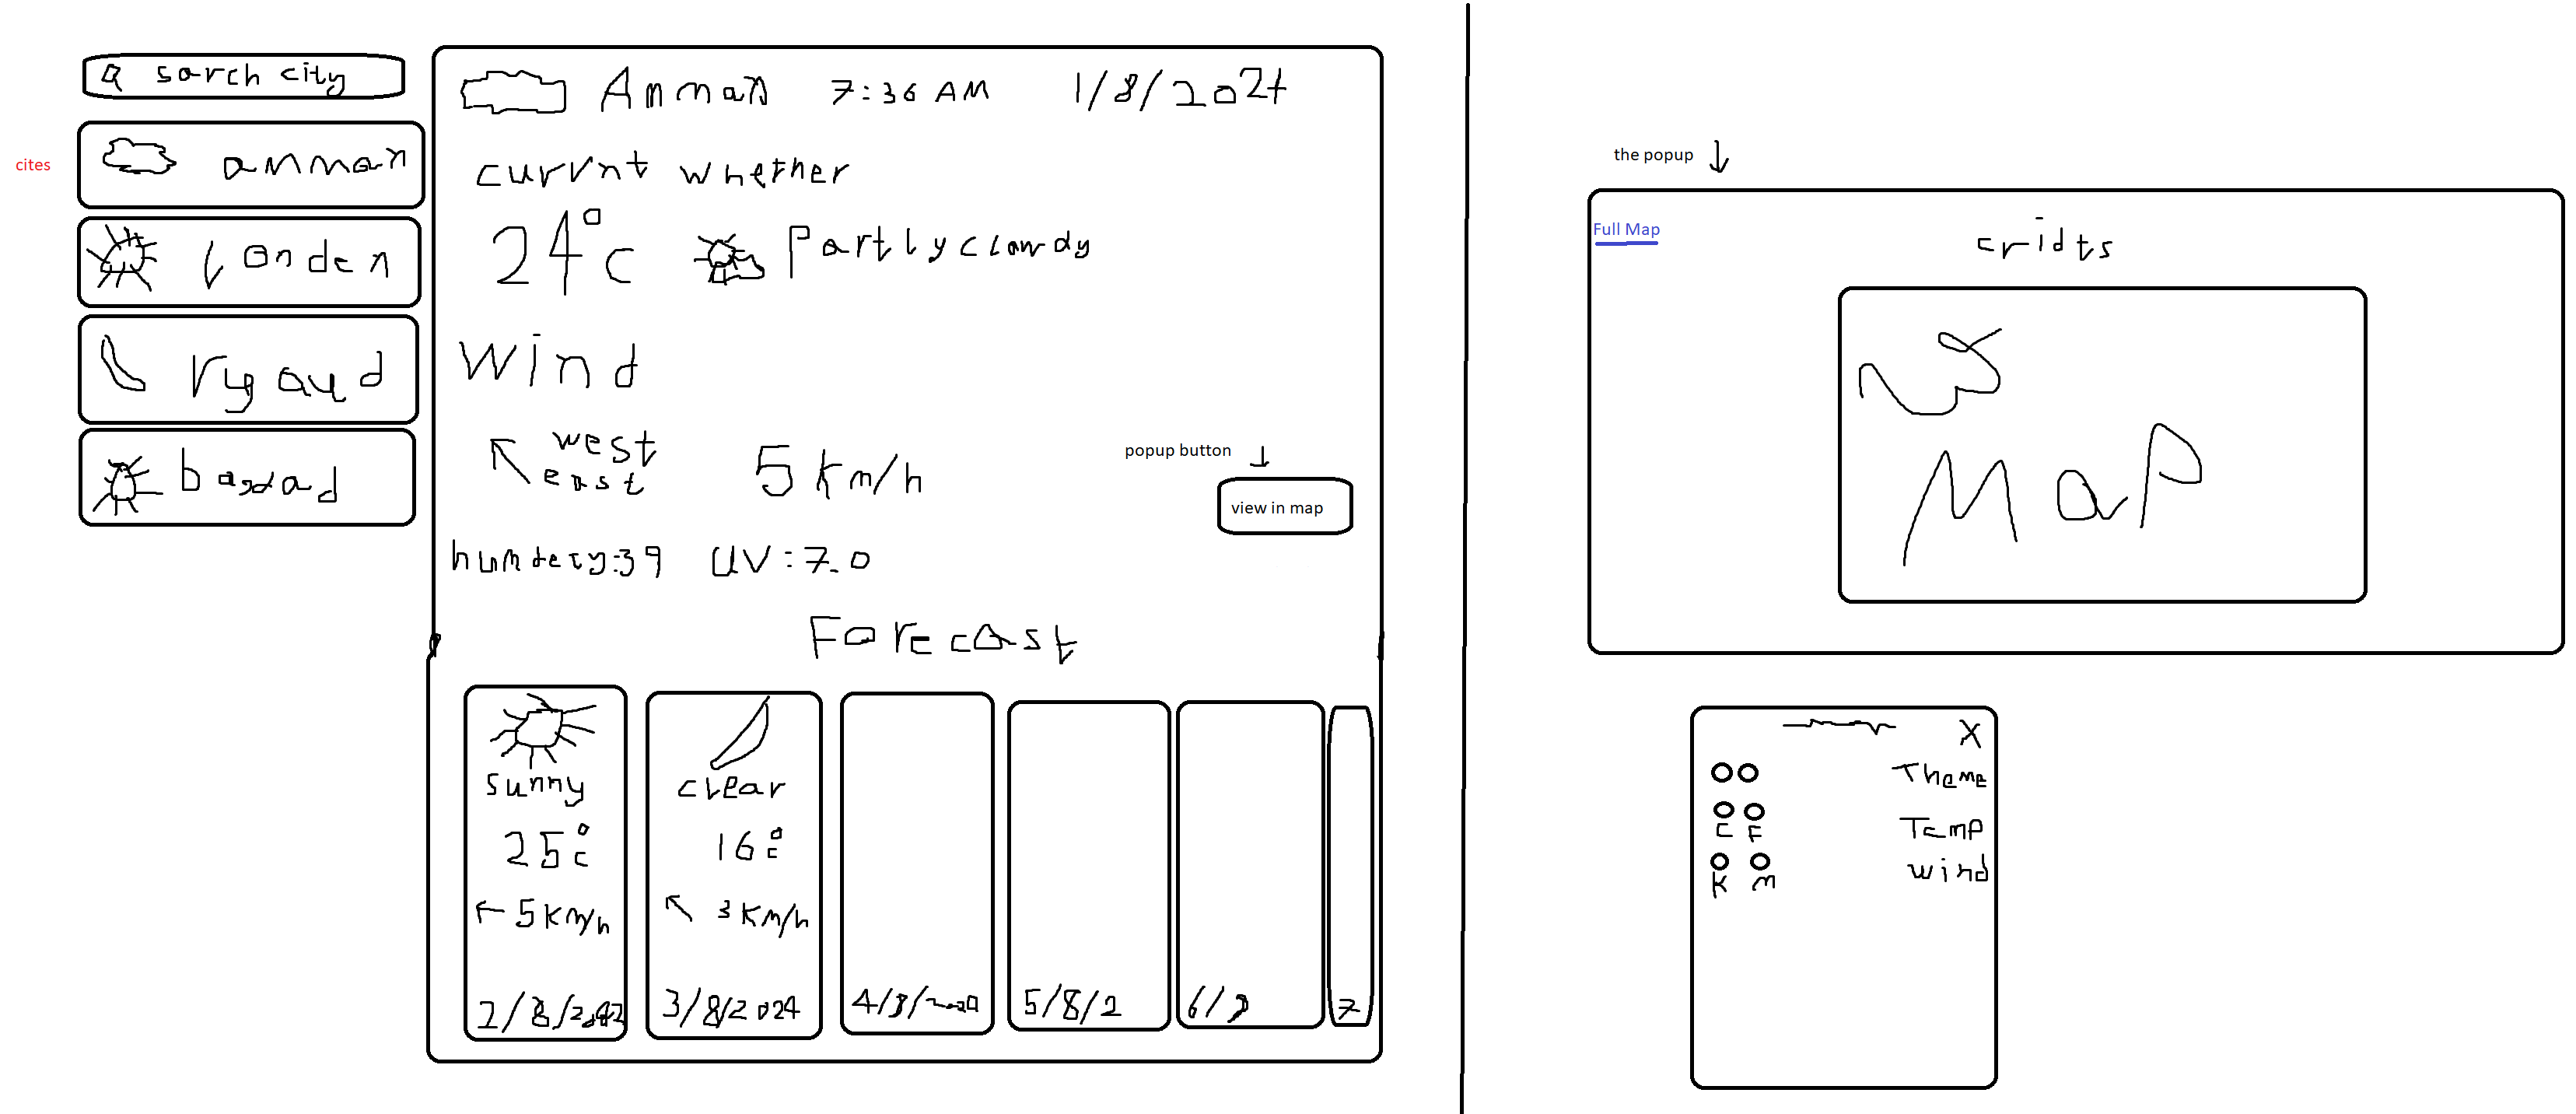 sarch city
cites
amman
london
rygaud
bagdad
Amman 7:36 AM 1/8/2024
currnt whether
24°c Partly clowdy
wind
west
east
5 km/h
popup button
view in map
humdety:39 UV:7.0
Forecast
sunny
25°c
5 km/h
clear
16°c
3 km/h
3/8/2024
5/8/2
7
the popup
Full Map
cridts
Map
X
Theme
C F
Temp
K M
wind